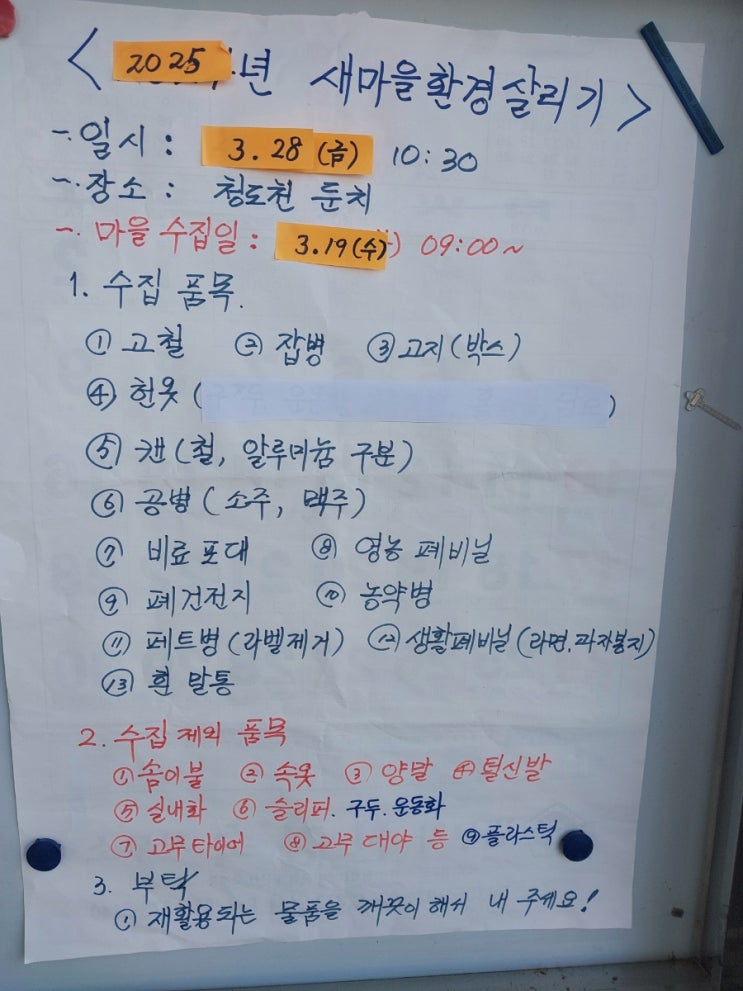 < 2025년 새마을환경살리기 >
~. 일시 : 3.28 (금) 10:30
~. 장소 : 청도천 둔치
~. 마을 수집일 : 3.19 (수) 09:00~
1. 수집 품목.
① 고철 ② 잡병 ③ 고지 (박스)
④ 헌옷 ( )
⑤ 캔 (철, 알루미늄 구분)
⑥ 공병 (소주, 맥주)
⑦ 비료포대 ⑧ 영농 폐비닐
⑨ 폐건전지 ⑩ 농약병
⑪ 페트병 (라벨제거) ⑫ 생활폐비닐 (라면.과자봉지)
⑬ 흰 말통
2. 수집 제외 품목
① 솜이불 ② 속옷 ③ 양말 ④ 털신발
⑤ 실내화 ⑥ 슬리퍼. 구두. 운동화
⑦ 고무타이어 ⑧ 고무 대야 등 ⑨ 플라스틱
3. 부탁
① 재활용되는 물품을 깨끗이 해서 내 주세요!